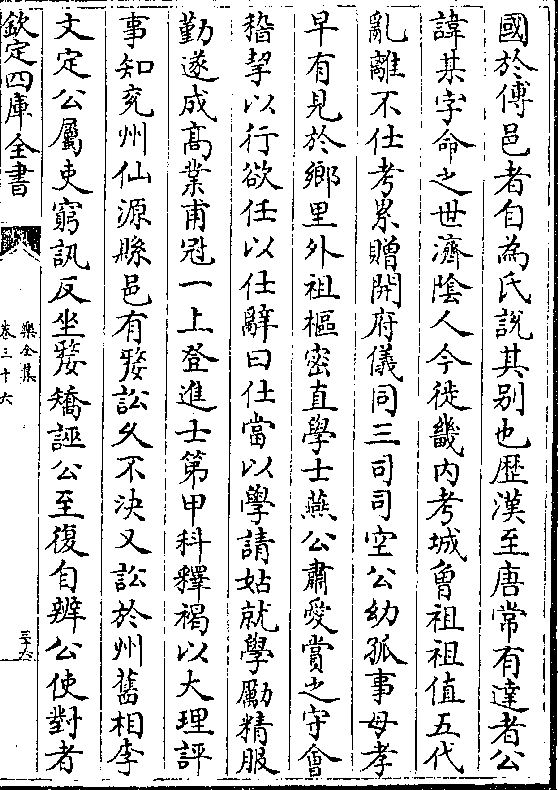 國於傅邑者自為氏說其别也歴漢至唐常有達者公
諱某字命之世濟隂人今徙畿内考城曾祖祖值五代
亂離不仕考累贈開府儀同三司司空公幼孤事母孝
早有見於鄉里外祖樞密直學士燕公肅愛賞之守會
稽挈以行欲任以仕辭曰仕當以學請姑就學勵精服
勤遂成髙業甫冠一上登進士第甲科釋褐以大理評
事知兖州仙源縣邑有嫠訟久不決又訟於州舊相李
文定公屬吏窮訊反坐嫠矯誣公至復自辨公使對者
欽定四庫全書
樂全集
卷三十六
三十六